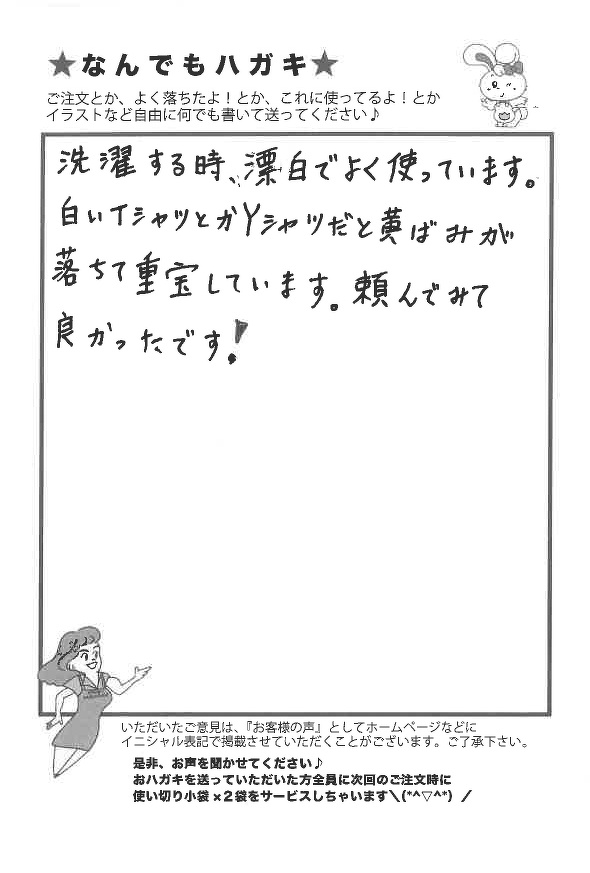 ★なんでもハガキ★
ご注文とか、よく落ちたよ！とか、これに使ってるよ！とか
イラストなど自由に何でも書いて送ってください♪
洗濯する時、漂白でよく使っています。
白いTシャツとかYシャツだと黄ばみが
落ちて重宝しています。頼んでみて
良かったです！
いただいたご意見は、『お客様の声』としてホームページなどに
イニシャル表記で掲載させていただくことがございます。ご了承下さい。
是非、お声を聞かせてください♪
おハガキを送っていただいた方全員に次回のご注文時に
使い切り小袋×2袋をサービスしちゃいます＼(*^▽^*)／